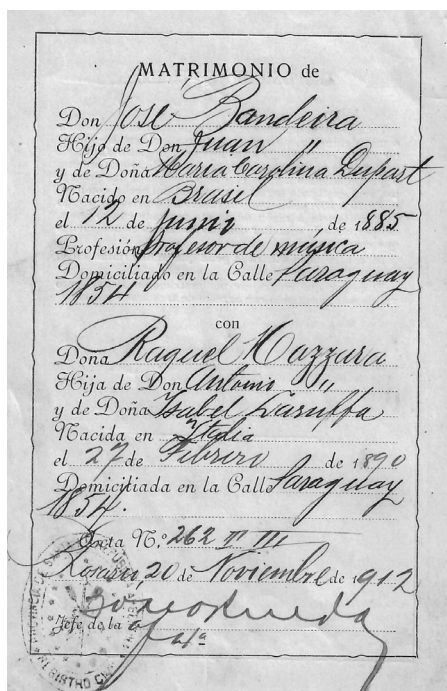 MATRIMONIO de
Don José Bandeira
Hijo de Don Juan "
y de Doña Maria Carolina Dupart
Nacido en Brasil
el 12 de junio de 1885
Profesión profesor de música
Domiciliado en la Calle Paraguay
1854
con
Doña Raquel Mazzara
Hija de Don Antonio "
y de Doña Isabel Taruffa
Nacida en Italia
el 27 de Febrero de 1890
Domiciliada en la Calle Paraguay
1854.
Acta N.º 262 T III
Rosario 20 de Noviembre de 1912
Jefe de la
REGISTRO